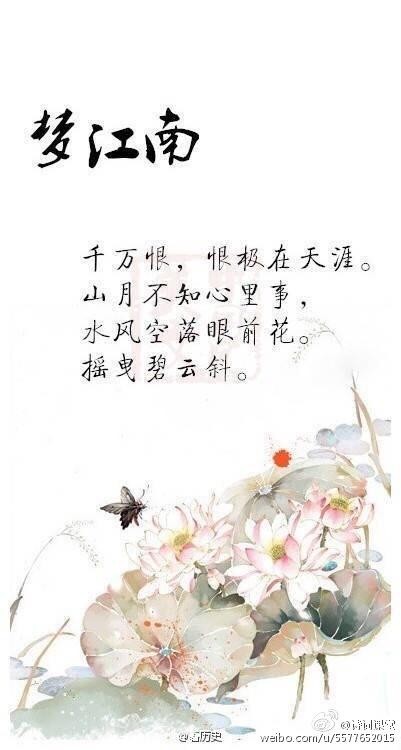 梦江南
千万恨，恨极在天涯。
山月不知心里事，
水风空落眼前花。
摇曳碧云斜。
@看历史
weibo.com/u/5577652015